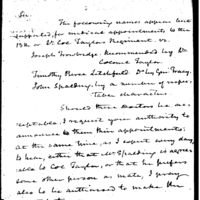 Sir.
The following names appear best
supported, for medical appointments to the
13th or Lt. Col. Taylors Regiment. viz.
Joseph Trowbridge. Recommended by Lt.
Colonel Taylor.
Timothy Pierce Litchfield Do by Gen. Tracy.
John Spalding, by a number of respec-
table characters
Should these Doctors be ac-
ceptable, I request your authority to
announce to them their appointments;
at the same time, as I expect every day
to hear, either that Mr. Spalding is agree-
able to Col. Taylor, or that he prefers
some other person as mate, I pray
also to be authorised to make the